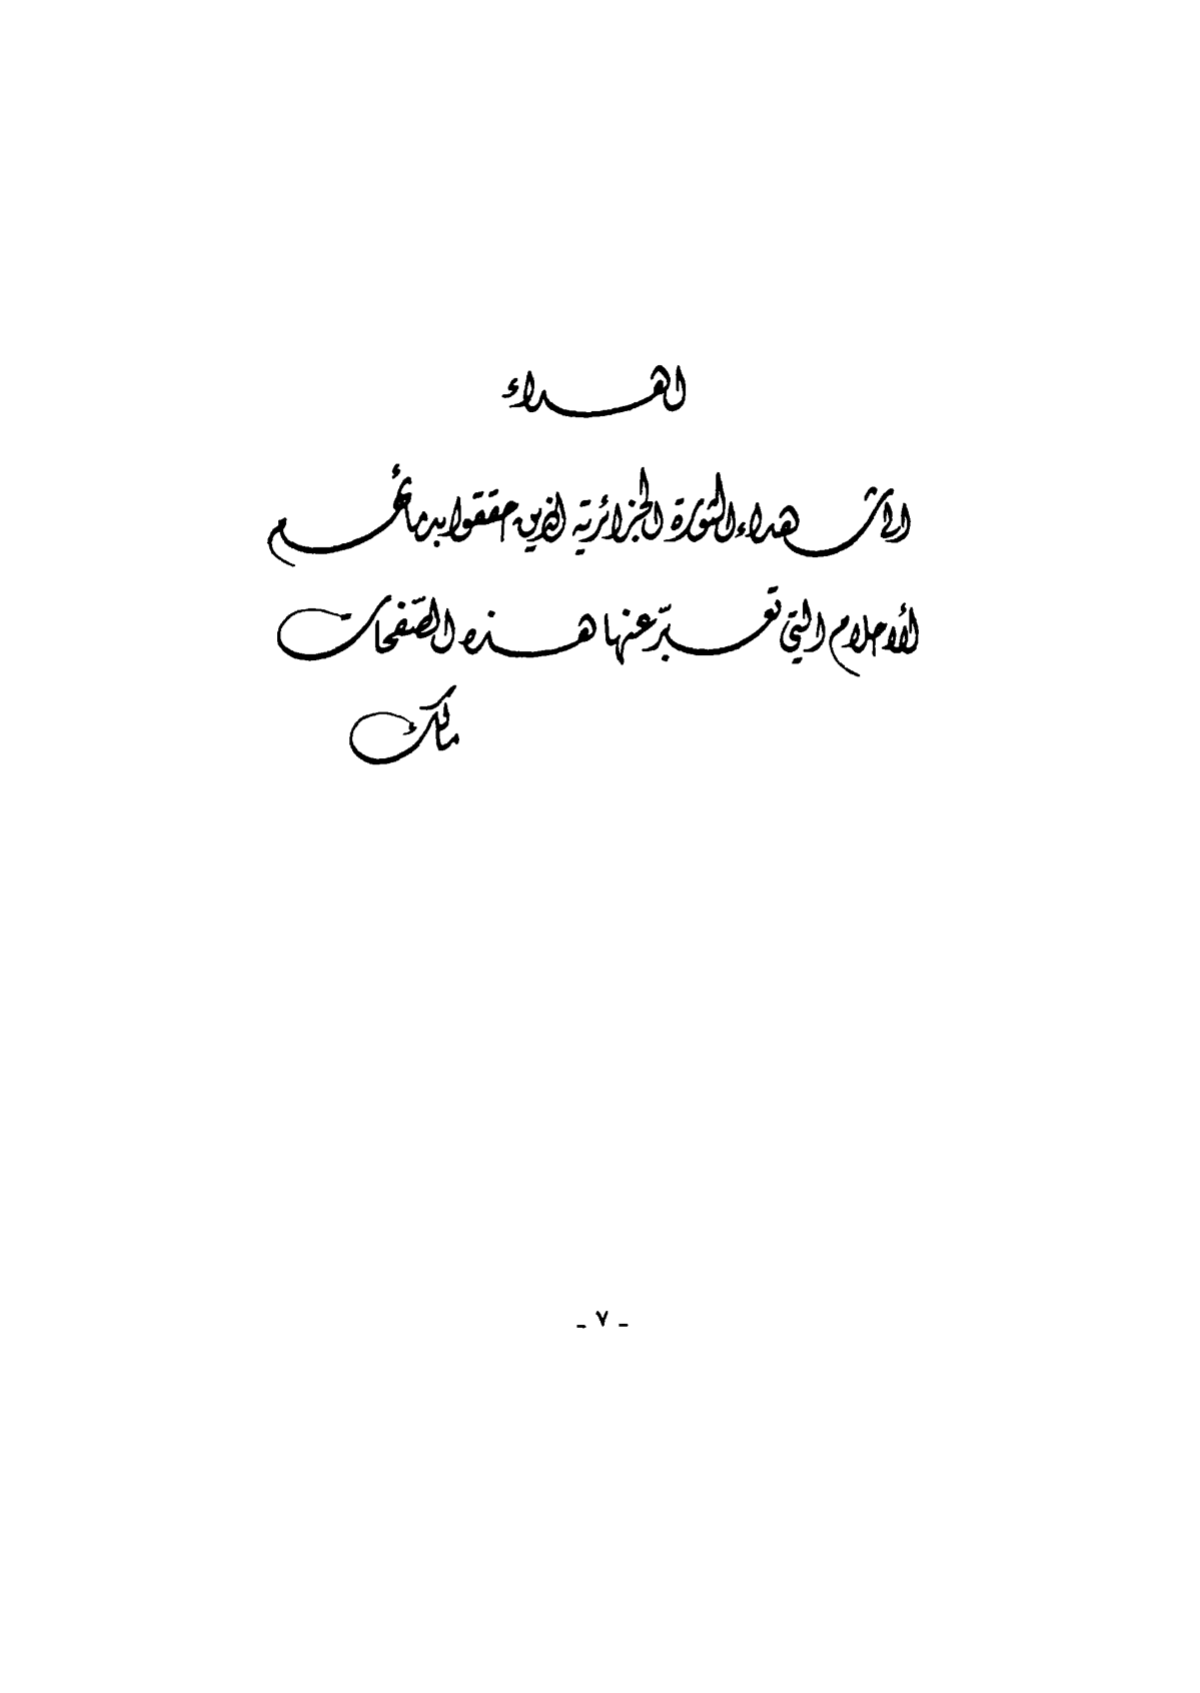 اهداء
الى شهداء الثورة الجزائرية الذين حققوا بدمائهم
الأحلام التي تعبّر عنها هذه الصّفحات
مالك
- ٧ -